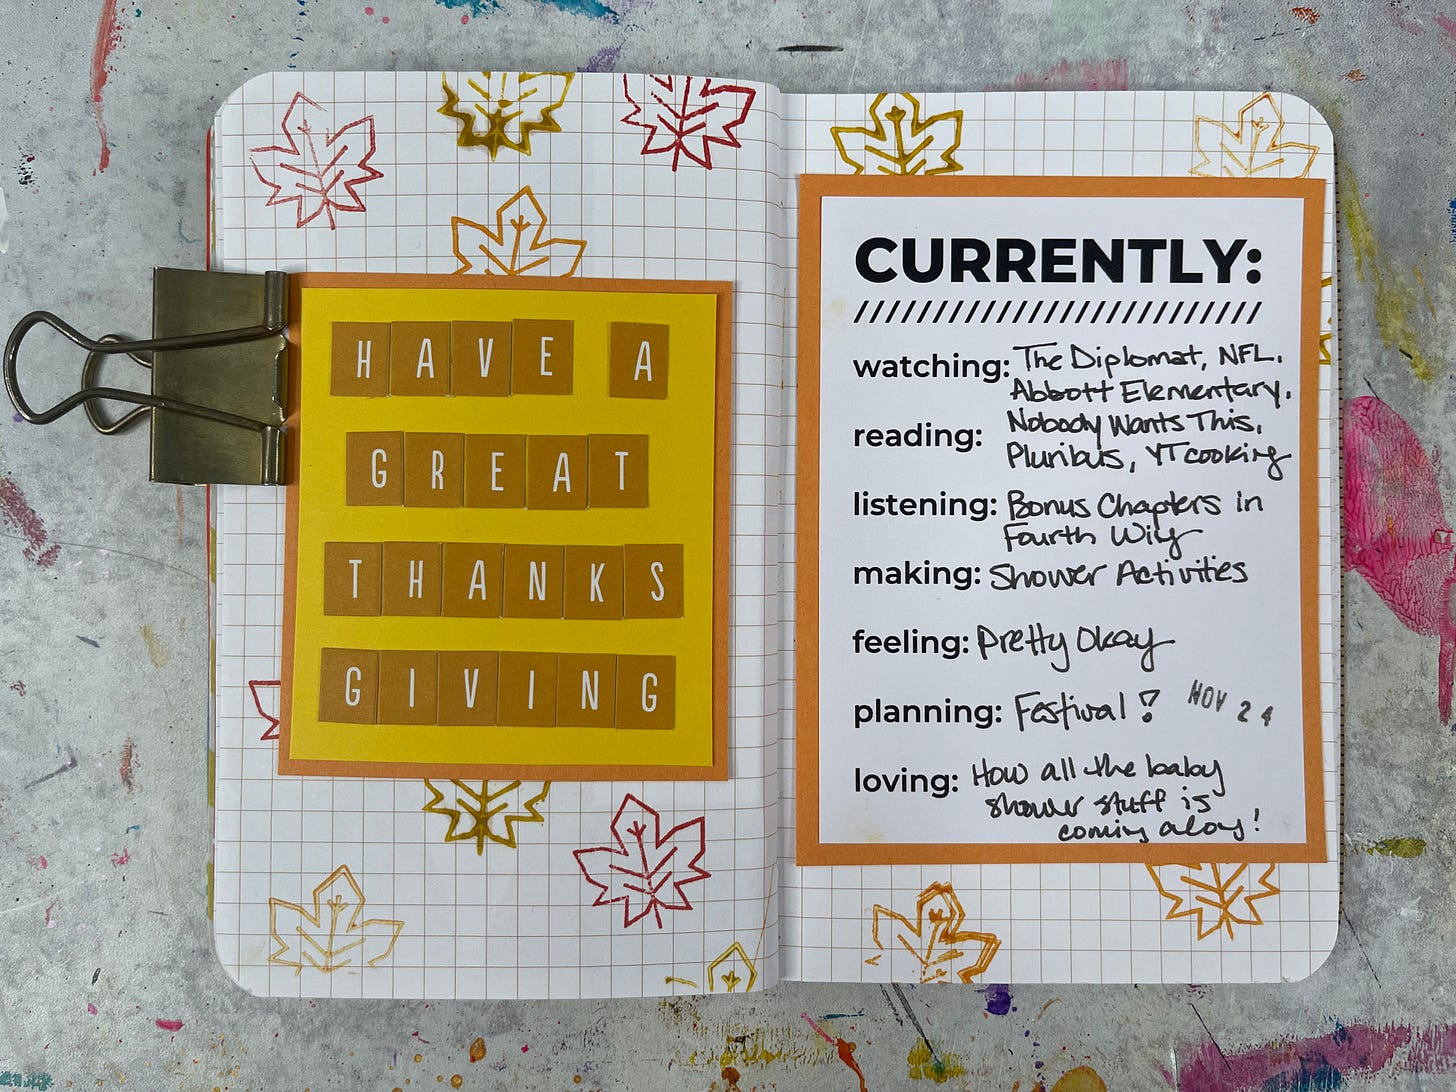 HAVE A
GREAT
THANKS
GIVING
CURRENTLY:
watching: The Diplomat, NFL,
Abbott Elementary,
reading: Nobody Wants This,
Pluribus, YT cooking
listening: Bonus Chapters in
Fourth Wing
making: Shower Activities
feeling: Pretty Okay
planning: Festival? NOV 24
loving: How all the baby
shower stuff is
coming along!